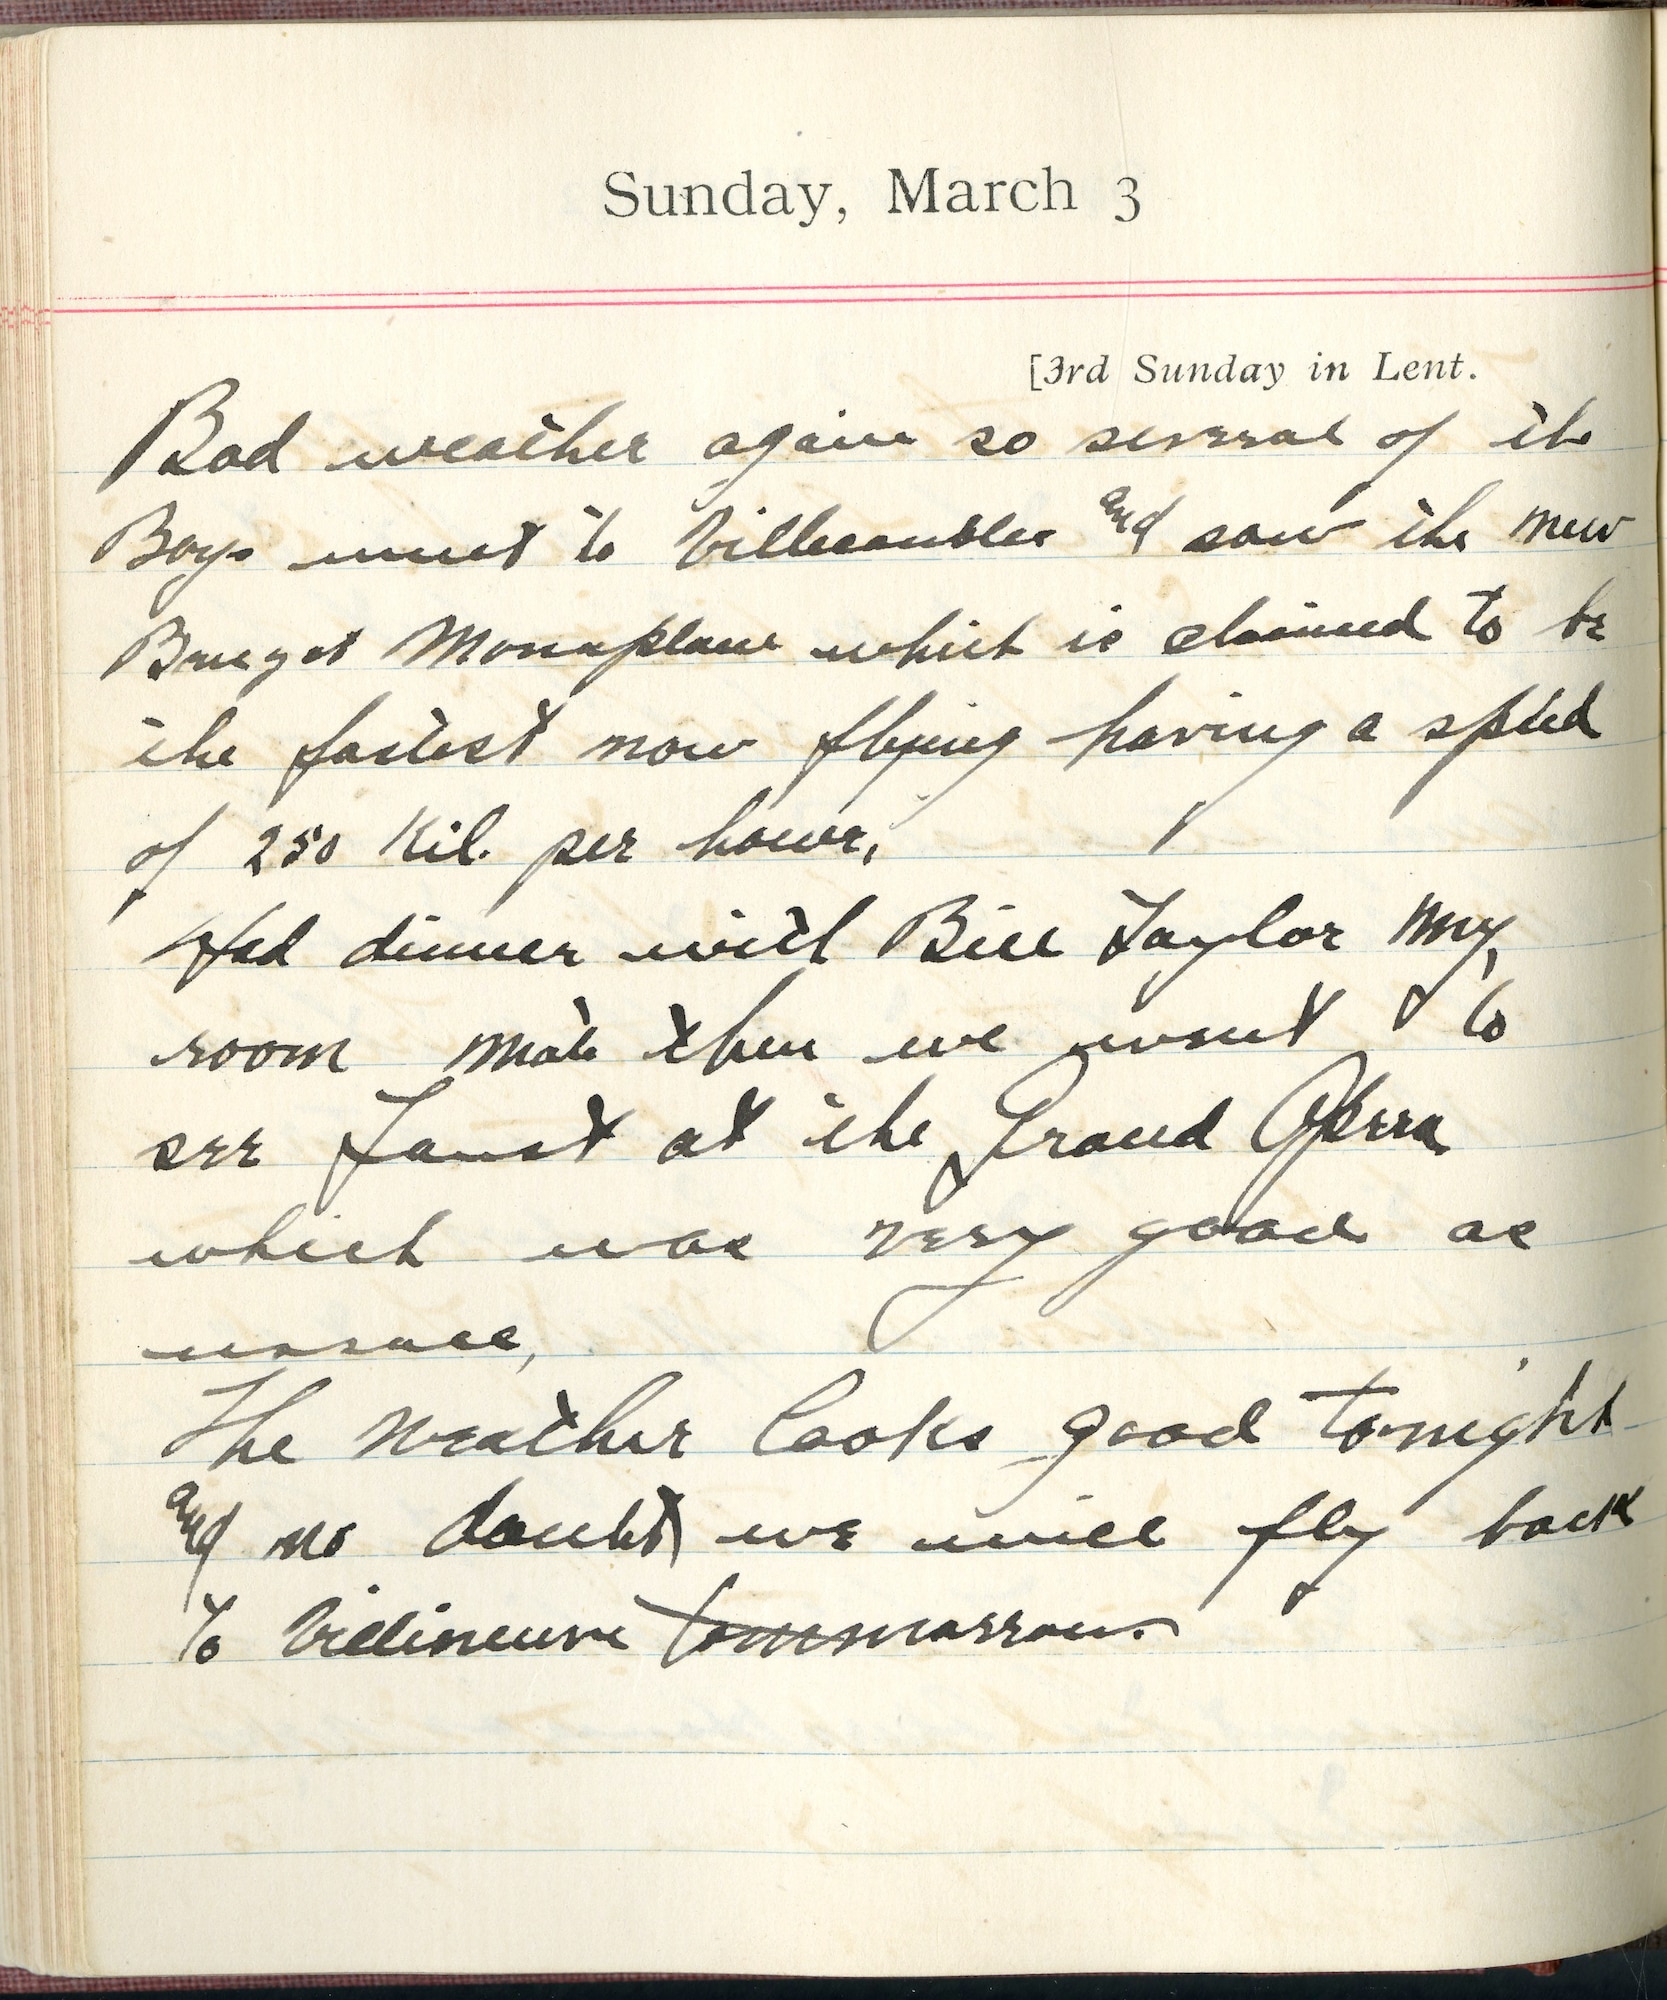 Sunday, March 3
[3rd Sunday in Lent.
Bad weather again so several of the
Boys went to Villecoublee and saw the new
Breget Monoplane which is claimed to be
the fastest now flying having a speed
of 250 Kil. per hour,
Had dinner with Bill Taylor my
room mate then we went to
see Faust at the Grand Opera
which was very good as
usuall,
The weather looks good tonight
and no doubt we will fly back
to Villineuve tommorrow.